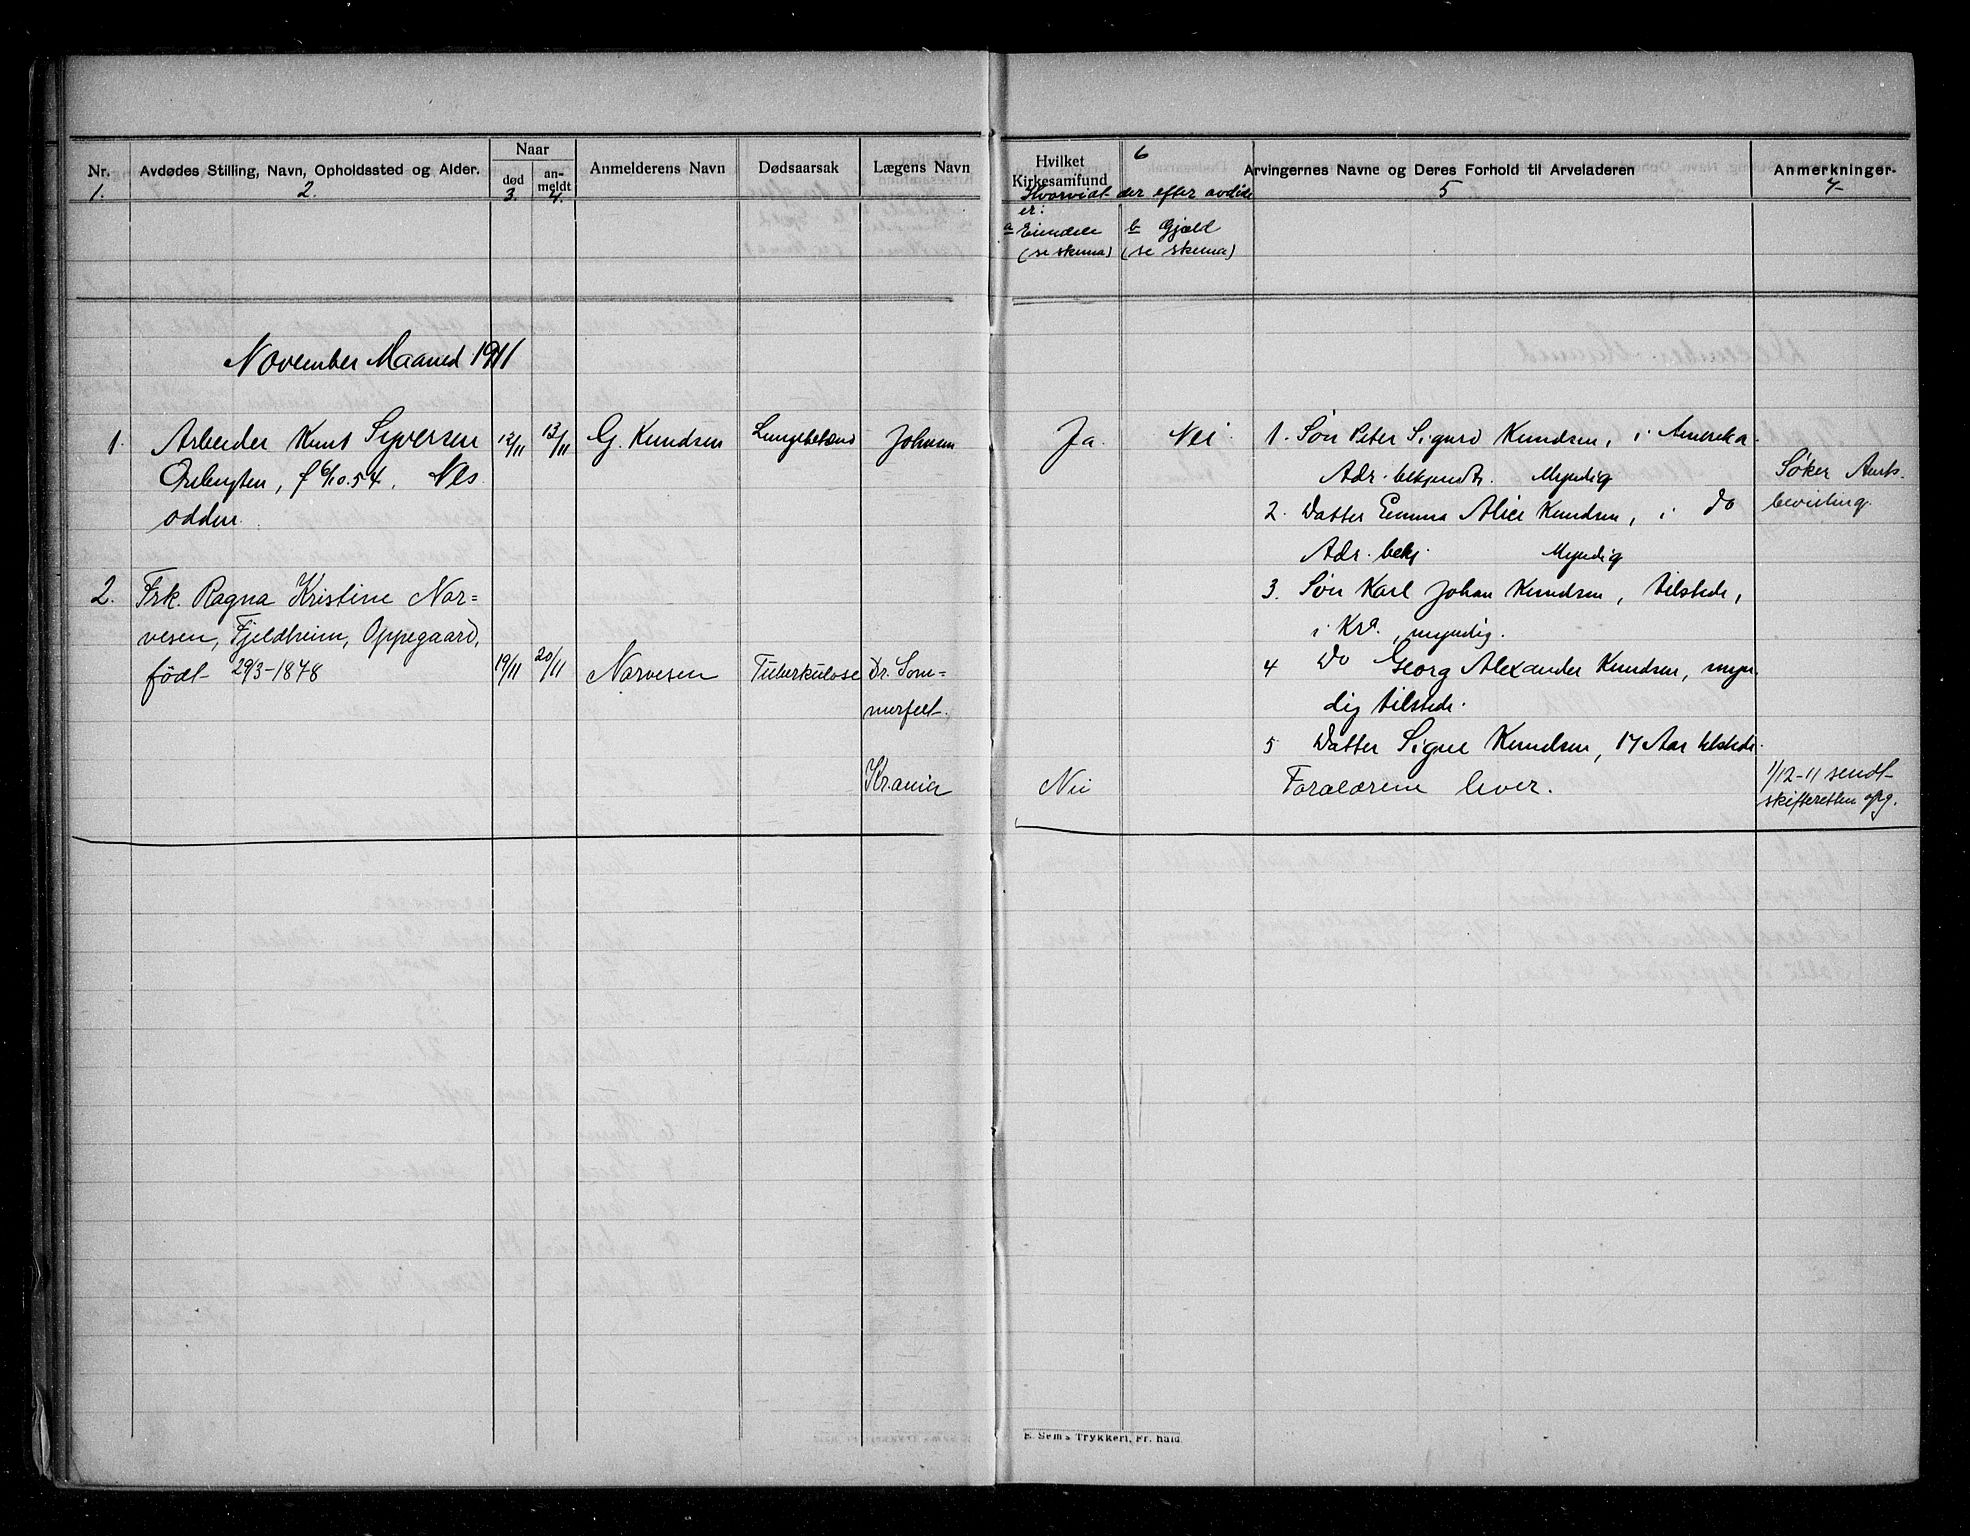 Nr.
1.
Avdødes Stilling, Navn, Opholdssted og Alder.
2.
Naar
død
3.
an-
meldt
4.
Anmelderens Navn
Dødsaarsak
Lægens Navn
Hvilket
Kirkesamfund
6
Hvorvidt der efter avdøde
er:
a Eiendele
(se skema)
b Gjæld
(se skema)
Arvingernes Navne og Deres Forhold til Arveladeren
5
Anmerkninger.
7
November Maaned 1911
1. Arbeider Knut Syversen 12/11 13/11 G. Knudsen Lungebetænd Johnsen Ja. Nei. 1. Søn Peter Sigurd Knudsen, i Amerika
f 6/10.54. Nes
odden.
Adr. bekjendt. Myndig
Søker Amts-
bevilling.
2. Datter Emma Alice Knudsen, i do
Adr. bekj. Myndig
3. Søn Karl Johan Knudsen, tilstede,
i Kra., myndig.
4 Do Georg Alexander Knudsen, myn-
dig tilstede.
5 Datter Signe Knudsen, 17 Aar tilstede.
2. Frk. Ragna Kristine Nar=
vesen, Fjeldheim, Oppegaard,
født 29/3-1878 19/11 20/11 Narvesen Tuberkulose Dr. Som=
merfelt.
Krania
Nei Forældrene lever. 1/12-11 sendt
skifteretten opg.
E. Sem's Trykkeri, Fr.hald.